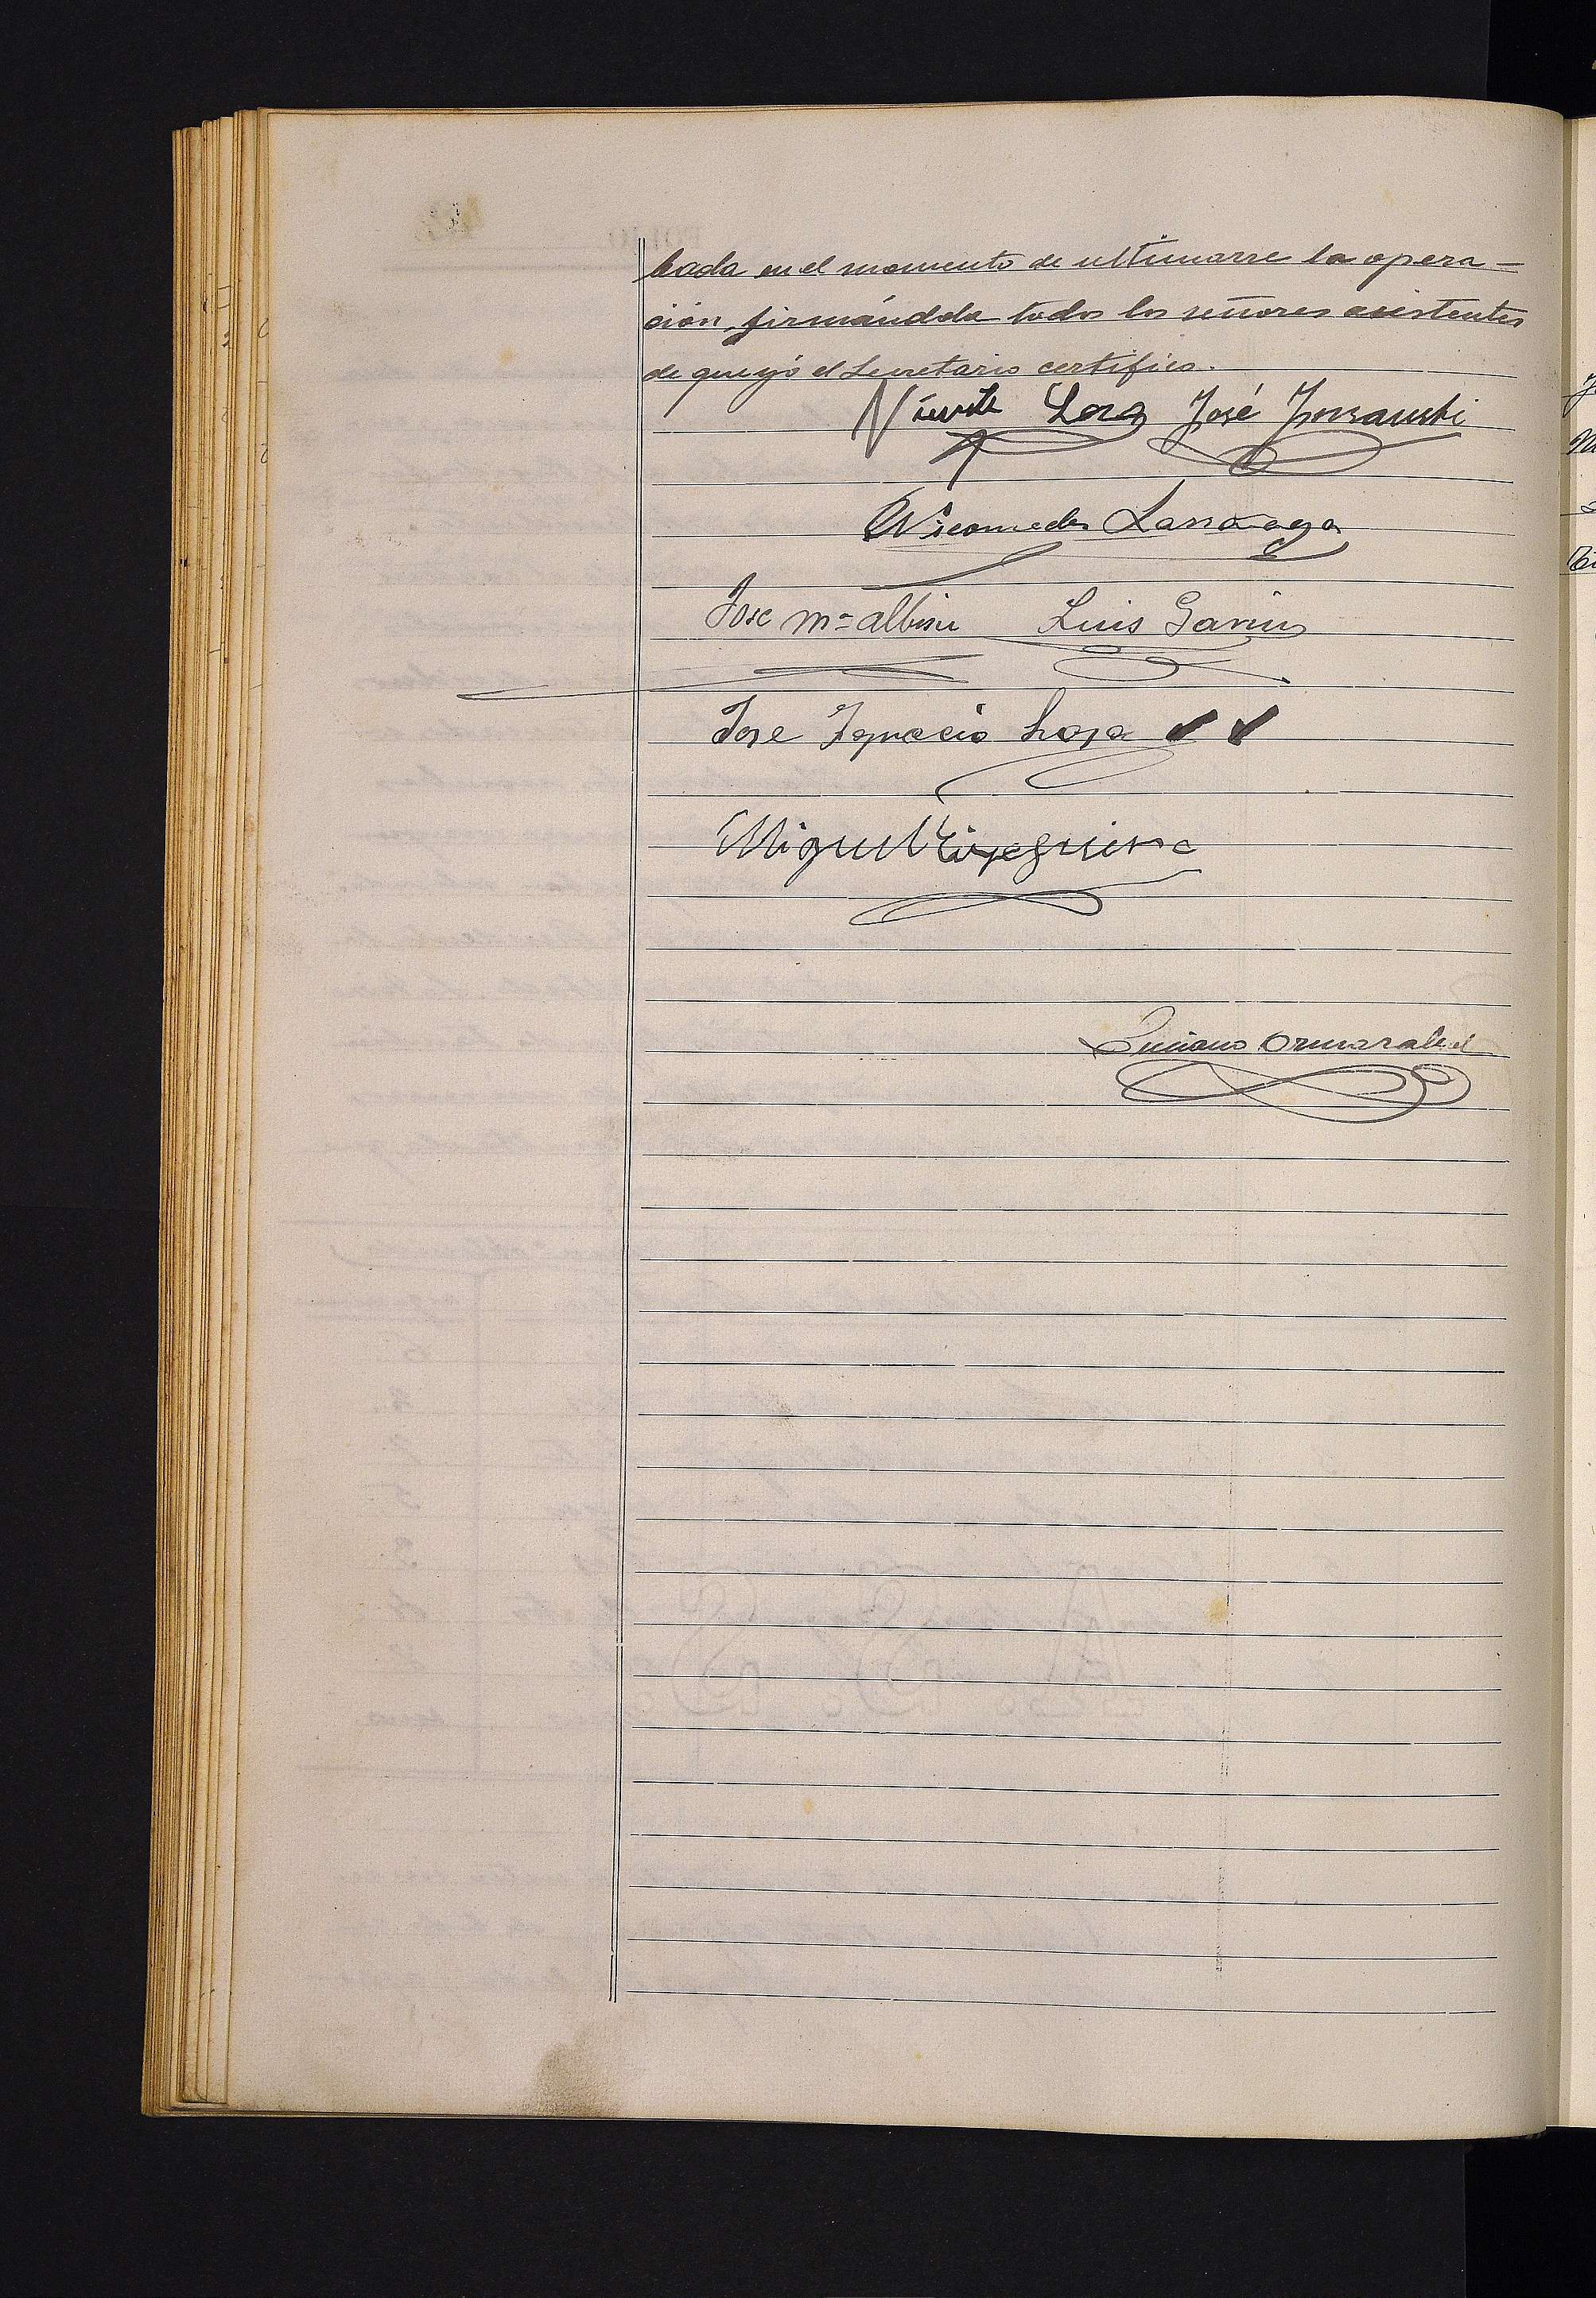 bada en el momento de ultimarse la opera-
ción, firmándola todos los señores asistentes
de que yó el Secretario certifico.
José
Nicomedes Larrañaga
Jose Mª albisu Luis Garin
Jose Ygnacio
Miguel
Luciano Ormazabal